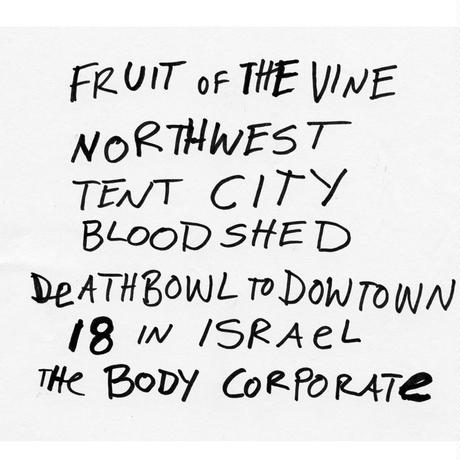 FRUIT OF THE VINE
NORTHWEST
TENT CITY
BLOODSHED
DeATHBOWL TO DOWTOWN
18 IN ISRAeL
THe BODY CORPORATe